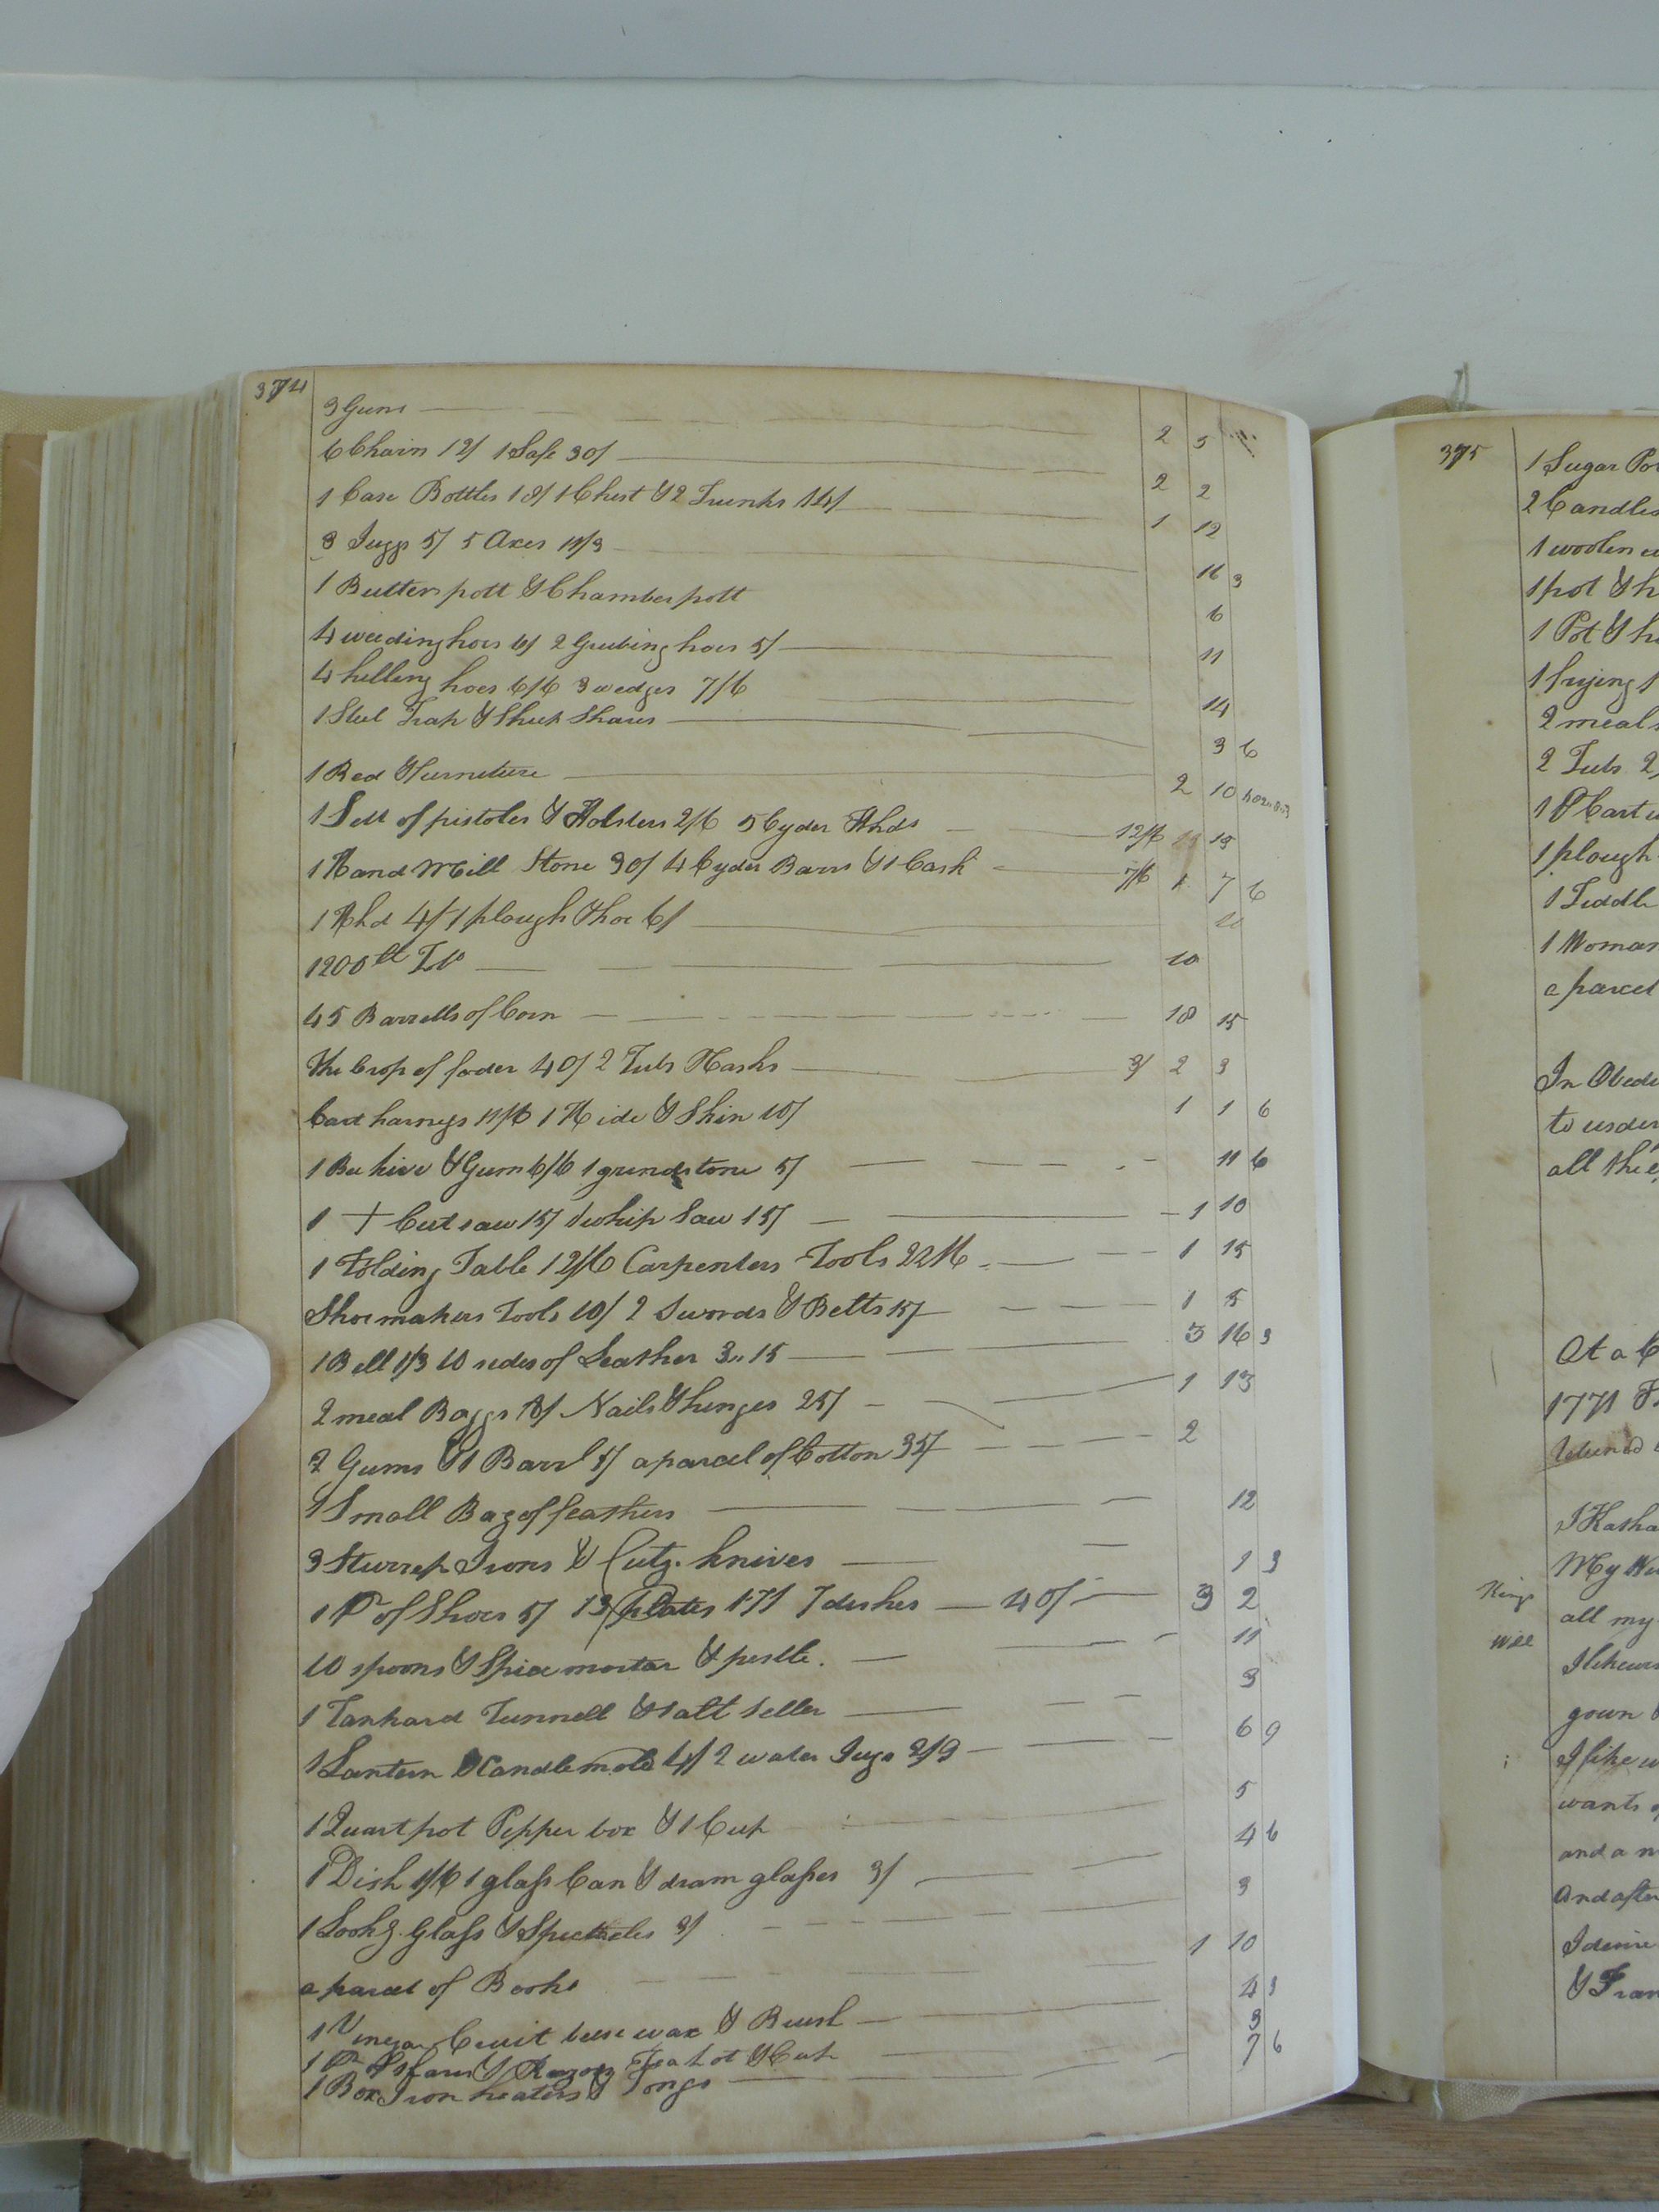 374
3 Guns 2 5
6 Chairs 12/ 1 Safe 30/ 2 2
1 Case Bottles 18/ 1 Chest & 2 Trunks 14/ 1 12
3 Juggs 5/ 5 Axes 11/3 16 3
1 Butter pott & Chamber pott 6
4 weeding hoes 6/ 2 Grubing hoes 5/ 11
4 hilling hoes 6/6 3 wedges 7/6 14
1 Steel Trap & Sheep Shears 3 6
1 Bed & furniture 2 10
1 Sett of pistoles & Holsters 2/6 5 Cyder Hhds 12/6 15
1 Hand Mill Stone 30/ 4 Cyder Barrs & 1 Cask 7/6 1 7 6
1 Hhd 4/ 1 plough & hoe 6/ 10
1200 lt Tob 10
45 Barrells of Corn 18 15
The Crop of foder 40/ 2 Tubs Hasks 3/ 2 3
Cart harness 11/6 1 Hide & Skin 10/ 1 1 6
1 Bee hive & Gum 6/6 1 grindstone 5/ 11 6
1 + Cut saw 15/ 1 whip Saw 15/ 1 10
1 Folding Table 12/6 Carpenters Tools 22/6 1 15
Shoemakers Tools 10/ 2 Swords & Belts 15/ 1 5
1 Bell 1/3 10 sides of Leather 3.. 15 3 16 3
2 meal Baggs 8/ Nails & hinges 25/ 1 13
2 Gums & 1 Barrl 5/ a parcel of Cotton 35/ 2
1 Small Bag of feathers 12
3 Sturrep Irons & Cutg. knives 1 3
1 Pr of Shoes 5/ 13 plates 17/ 7 dishes 40/ 3 2
10 spoons & Spice mortar & pestle. 11
1 Tankard Tunnell & salt seller 3
1 Lantern & Candlemold 4/ 2 water Jugs 2/9 6 9
1 Quart pot Pepper box & 1 Cup 5
1 Dish 1/6 1 glass Can & dram glasses 3/ 4 6
1 Lookg. Glass & Spectacles 3/ 3
a parcel of Books 1 10
1 Vinegar Cruit beese wax & Brush 4 3
1 Pr Razors Tea pot & Cup 3
1 Box Iron heaters & Tongs 7 6
375
1 Sugar
2 Candles
1 woolen
1 pot & h
1 Pot & h
1 frying
2 meal
2 Tubs 2
1 Cart
1 plough
1 Fiddle
1 Woman
a parcel
In Obedi
to us
all the
At a C
1771
I
My
Kings
Will
all my
I likewis
gown
I like w
wants
and a
And after
I desire
& Fran